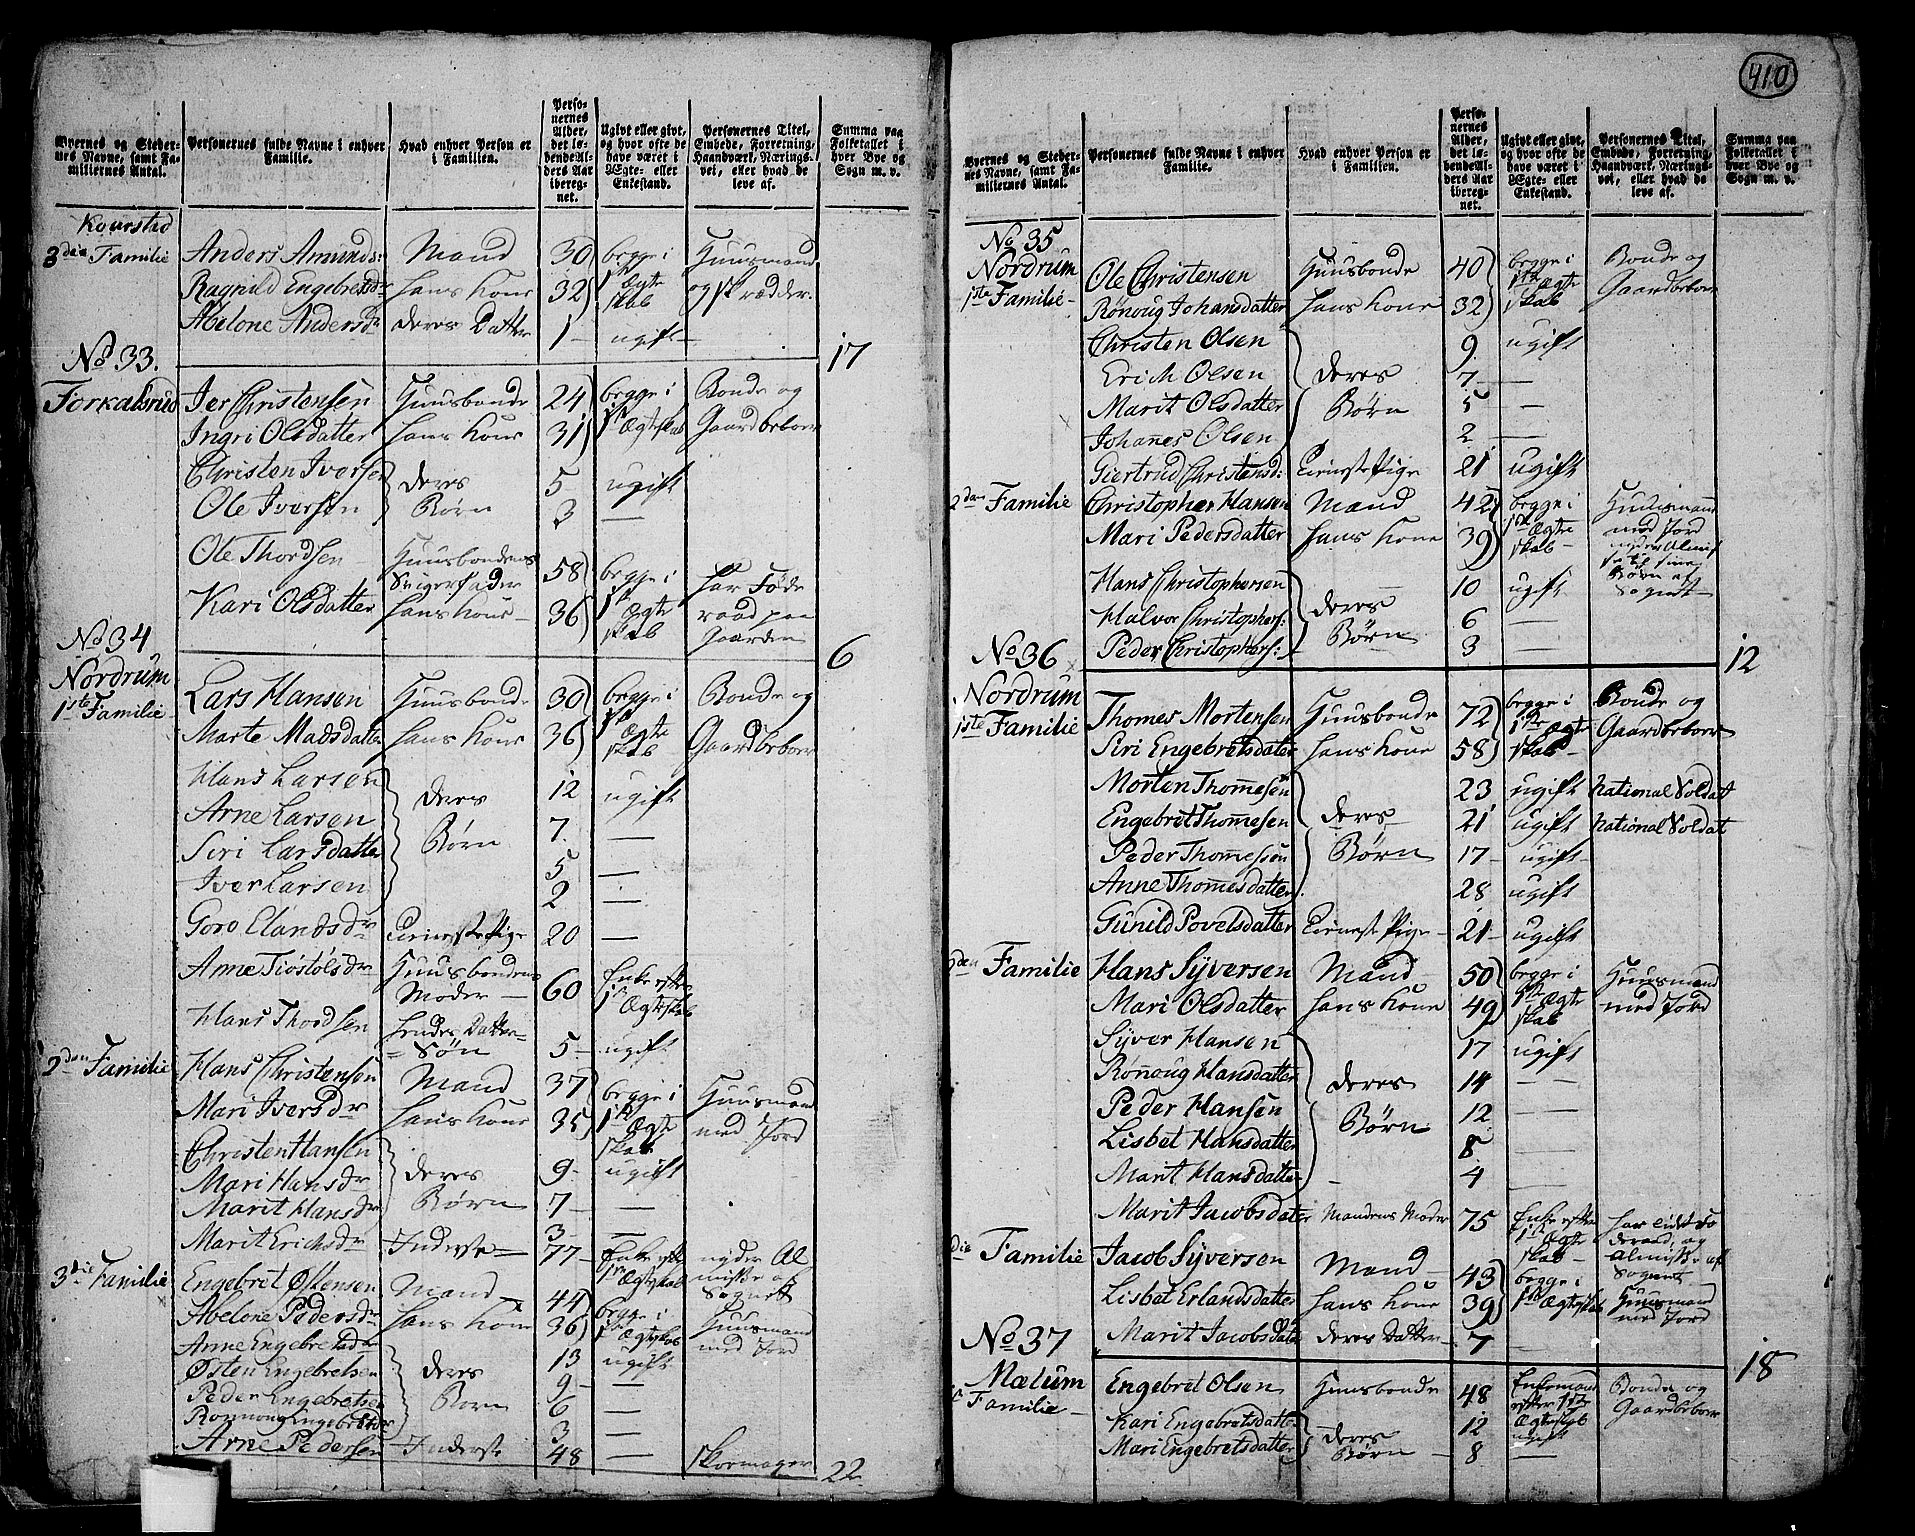 410
Byernes og Stedernes Navne, samt Familiernes Antal.
Personernes fulde Navne i enhver Familie.
Hvad enhver Person er i Familien.
Personernes Alder, det løbende Alders Aar iberegnet.
Ugivt eller givt, og hvor ofte de have været i Ægte- eller Enkestand.
Personernes Titel, Embede, Forretning, Haandværk, Næringsvei, eller hvad de leve af.
Summa paa Folketallet i hver Bye og Sogn m. v.
3die Familie Anders Amunds: Mand 30 begge i 1ste Ægteskab Huusmand og Skrædder
Ragnild Engebretsdr hans Kone 32
Abelone Andersdr deres Datter 1 ugift
17
No 33.
Forkalsrud Iver Christensen Huusbonde 24 begge i 1ste Ægteskab Bonde og Gaardbeboer
Ingri Olsdatter hans Kone 31
Christen Iversen deres Børn 5 ugift
Ole Iversen 3 —
Ole Thordsen Huusbondens Svigerfader 58 begge i 1ste Ægteskab har Føderaad paa Gaarden
Kari Olsdatter hans Kone 36
6
No 34
Nordrum
1ste Familie Lars Hansen Huusbonde 30 begge i 1ste Ægteskab Bonde og Gaardbeboer
Marte Madsdatter hans Kone 36
Hans Larsen deres Børn 12 ugift
Arne Larsen 7 —
Siri Larsdatter 5 —
Iver Larsen 2 —
Goro Elandsdr Tieneste Pige 20 —
Anne Tiøstolsdr Huusbondens Moder 60 Enke efter 1ste Ægteskab
Hans Thordsen hendes Datter Søn 5 ugift
2den Familie Hans Christensen Mand 37 begge i 1ste Ægteskab Huusmand med Jord
Mari Iversdr hans Kone 35
Christen Hansen deres Børn 9 ugift
Mari Hansdr 7 —
Marit Hansdr 3 —
Marit Erichsdr Inderste 77 Enke efter 1ste Ægteskab nyder Almisse af Sognet
3die Familie Engebret Østensen Mand 44 begge i 1ste Ægteskab Huusmand med Jord
Abelone Pedersdr hans Kone 36
Anne Engebretsdr deres Børn 13 ugift
Østen Engebretsen 9 —
Peder Engebretsen 6 —
Ronnoug Engebretsdr 3 —
Arne Pedersen Inderste 48 — Skomager
22
Byernes og Stedernes Navne, samt Familiernes Antal.
Personernes fulde Navne i enhver Familie.
Hvad enhver Person er i Familien.
Personernes Alder, det løbende Alders Aar iberegnet.
Ugivt eller givt, og hvor ofte de have været i Ægte- eller Enkestand.
Personernes Titel, Embede, Forretning, Haandværk, Næringsvei, eller hvad de leve af.
Summa paa Folketallet i hver Bye og Sogn m. v.
No 35
Nordrum
1ste Familie Ole Christensen Huusbonde 40 begge i 1ste Ægteskab Bonde og Gaardbeboer
Rønoug Johansdatter hans Kone 32
Christen Olsen deres Børn 9 ugift
Erich Olsen 7 —
Marit Olsdatter 5 —
Johanes Olsen 2 —
Giertrud Christensd: Tieneste Pige 21 ugift
2den Familie Christopher Hansen Mand 42 begge i 1ste Ægteskab Huusmand med Jord
Mari Pedersdatter hans Kone 39
Hans Christophersen deres Børn 10 ugift
Halvor Christophers: 6 —
Peder Christophers: 3 —
12
No 36
Nordrum
1ste Familie Thomes Mortensen Huusbonde 72 begge i 1ste Ægteskab Bonde og Gaardbeboer
Siri Engebretsdatter hans Kone 58
Morten Thomesen deres Børn 23 ugift National Soldat
Engebret Thomesen 21 ugift National Soldat
Peder Thomesen 17 ugift
Anne Thomesdatter 28 ugift
Gunild Povelsdatter Tienest Pige 21 ugift
den Familie Hans Syversen Mand 50 begge i 1ste Ægteskab Huusmand med Jord
Mari Olsdatter hans Kone 49
Syver Hansen deres Børn 17 ugift
Rønoug Hansdatter 14 —
Peder Hansen 12 —
Lisbet Hansdatter 8 —
Marit Hansdatter 4 —
Marit Jacobsdater Mandens Moder 75 Enke efter 1ste Ægteskab har lidt Føderaad, og Almisse af Sognet
die Familie Jacob Syversen Mand 43 begge i 1ste Ægteskab Huusmand med Jord
Lisbet Erlandsdatter hans Kone 39
Marit Jacobsdater deres Datter 7 —
18
No 37
Mælum
Familie Engebret Olsen Huusbonde 48 Enkemand efter 1ste Ægteskab Bonde og Gaardbeboer
Kari Engebretsdatter deres Børn 12 ugift
Mari Engebretsdatter 8 —